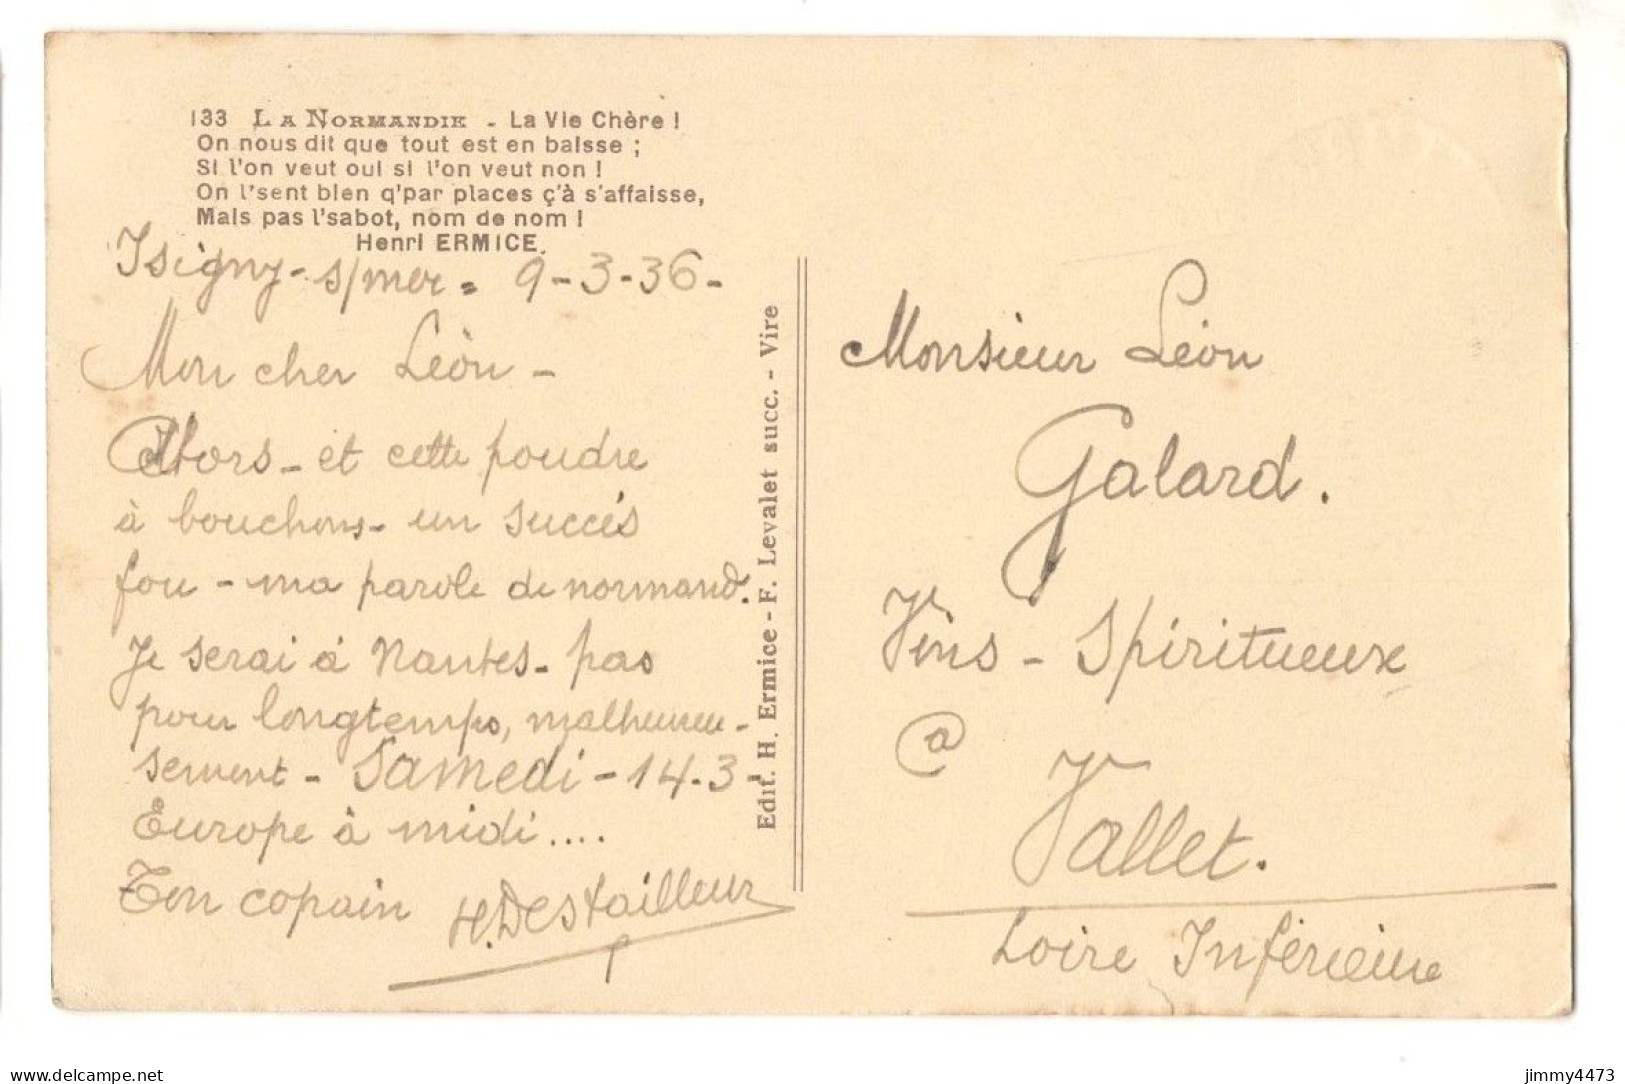 133 LA NORMANDIE - La Vie Chère !
On nous dit que tout est en baisse ;
Si l'on veut oui si l'on veut non !
On l'sent bien q'par places ç'à s'affaisse,
Mais pas l'sabot, nom de nom !
Henri ERMICE.
Isigny-s/mer = 9-3-36-
Mon cher Léon -
Alors - et cette poudre
à bouchons - un succés
fou - ma parole de normand.
Je serai à Nantes - pas
pour longtemps, malheureu-
sement - Samedi - 14-3-
Europe à midi....
Ton copain H. Destailleur
Edit. H. Ermice - F. Levalet succ. - Vire
Monsieur Léon
Galard.
Vins - Spiritueux
à
Vallet.
Loire Inférieure
delcampe.net
jimmy4473